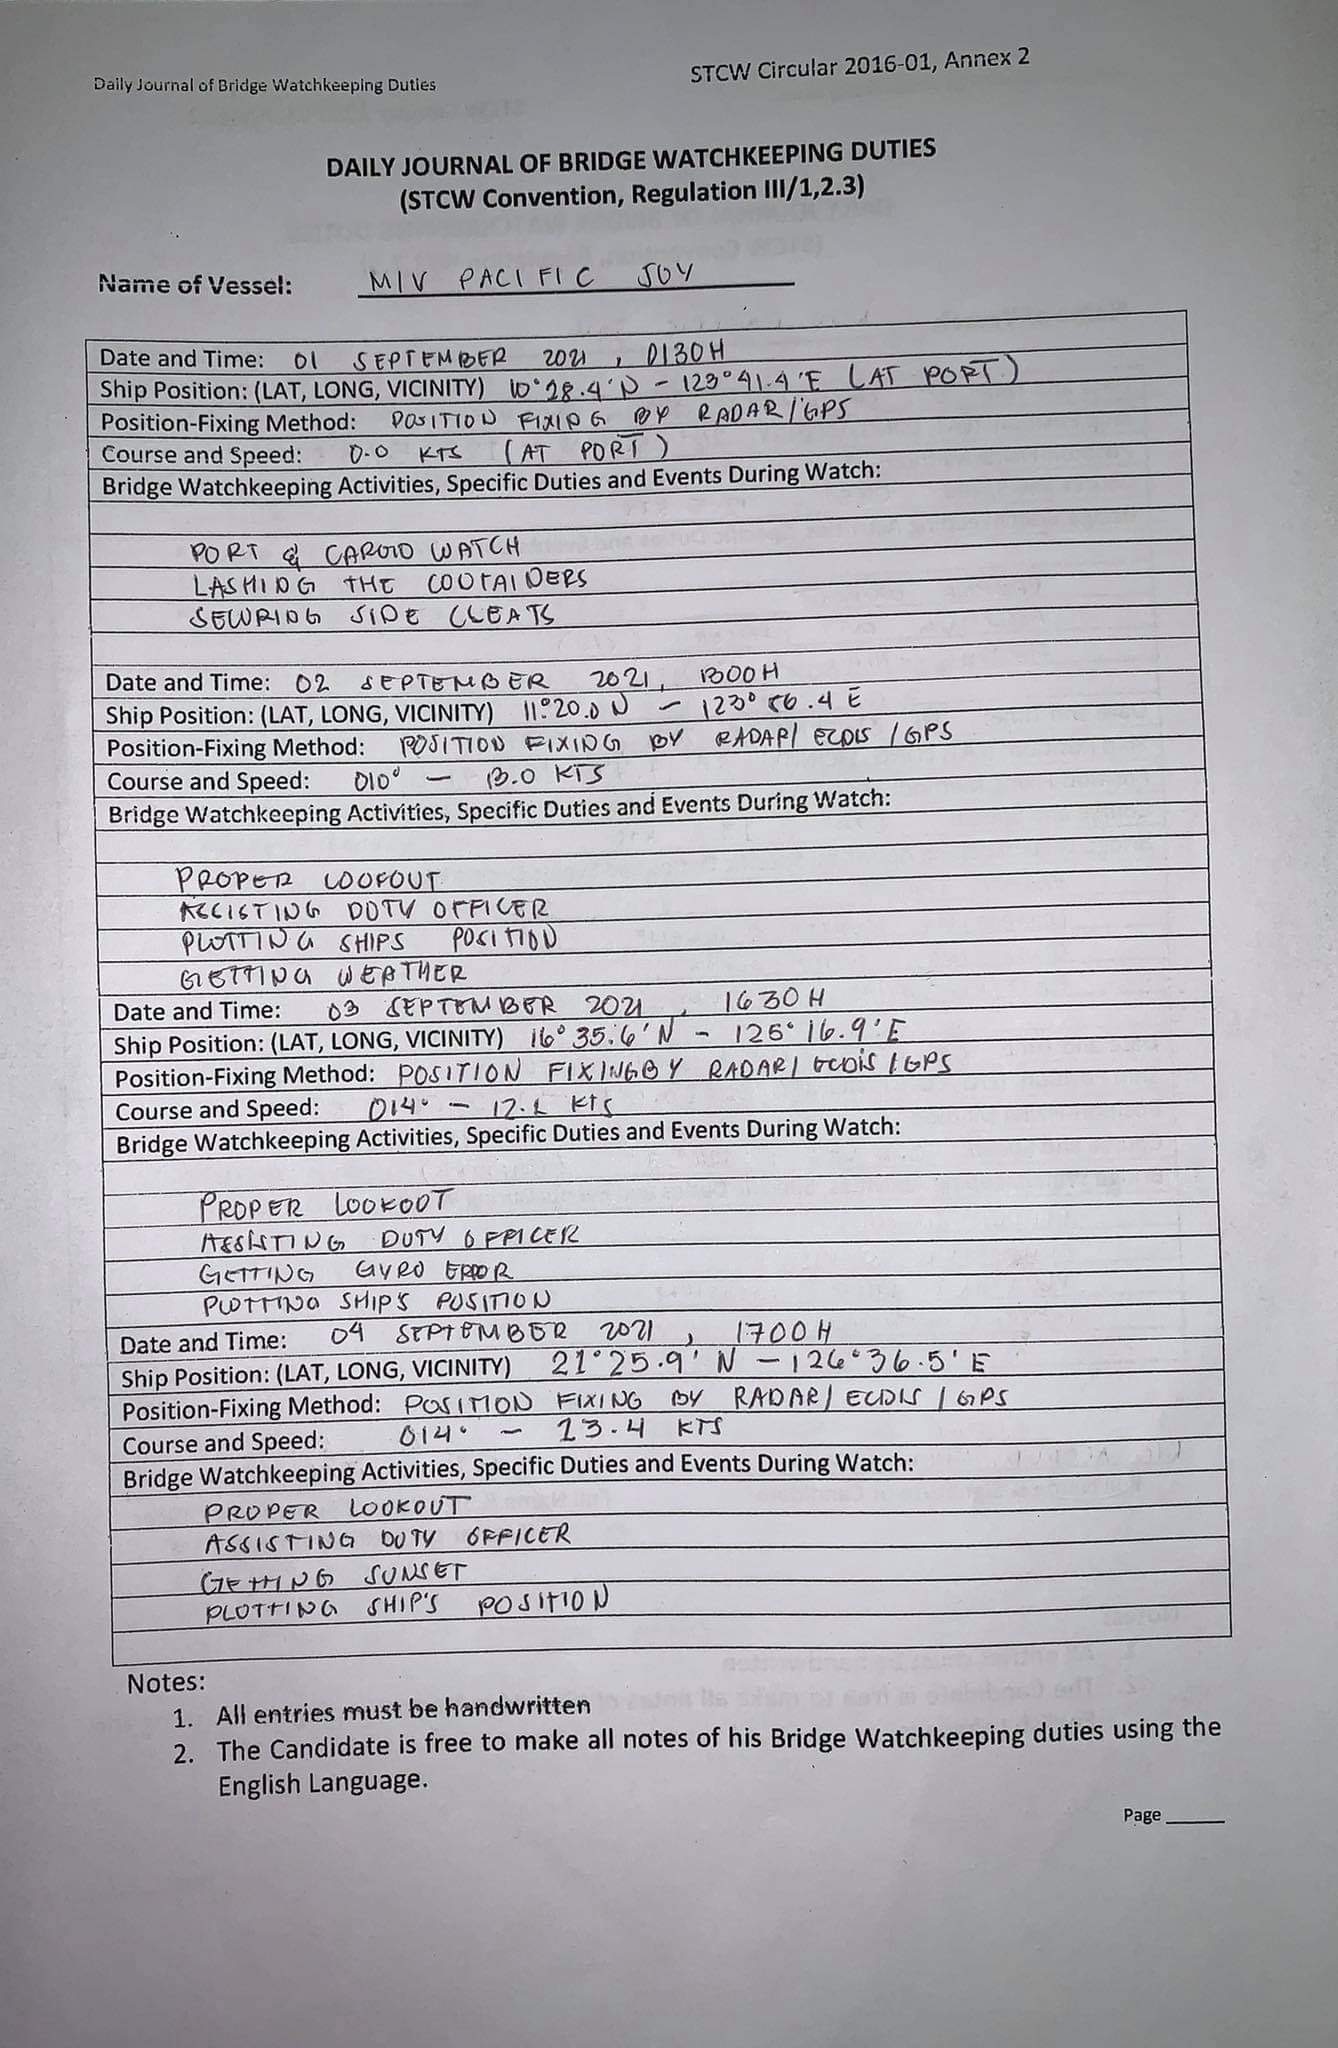 Daily Journal of Bridge Watchkeeping Duties
STCW Circular 2016-01, Annex 2
DAILY JOURNAL OF BRIDGE WATCHKEEPING DUTIES
(STCW Convention, Regulation III/1,2.3)
Name of Vessel: M/V PACIFIC JOY
Date and Time: 01 SEPTEMBER 2021, 0130H
Ship Position: (LAT, LONG, VICINITY) 10°28.4'N - 123°41.4'E (AT PORT)
Position-Fixing Method: POSITION FIXING BY RADAR/GPS
Course and Speed: 0.0 KTS (AT PORT)
Bridge Watchkeeping Activities, Specific Duties and Events During Watch:
PORT & CARGO WATCH
LASHING THE CONTAINERS
SECURING SIDE CLEATS
Date and Time: 02 SEPTEMBER 2021, 1300H
Ship Position: (LAT, LONG, VICINITY) 11°20.0 N - 123° 56.4 E
Position-Fixing Method: POSITION FIXING BY RADAR/ ECDIS /GPS
Course and Speed: 010° - 13.0 KTS
Bridge Watchkeeping Activities, Specific Duties and Events During Watch:
PROPER LOOKOUT
ASSISTING DUTY OFFICER
PLOTTING SHIPS POSITION
GETTING WEATHER
Date and Time: 03 SEPTEMBER 2021, 1630H
Ship Position: (LAT, LONG, VICINITY) 16° 35.6'N - 125° 16.9'E
Position-Fixing Method: POSITION FIXING BY RADAR/ ECDIS /GPS
Course and Speed: 014° - KTS
Bridge Watchkeeping Activities, Specific Duties and Events During Watch:
PROPER LOOKOUT
ASSISTING DUTY OFFICER
GETTING GYRO ERROR
PLOTTING SHIP'S POSITION
Date and Time: 04 SEPTEMBER 2021, 1700H
Ship Position: (LAT, LONG, VICINITY) 21°25.9' N - 126°36.5' E
Position-Fixing Method: POSITION FIXING BY RADAR/ ECDIS / GPS
Course and Speed: 014° - 13.4 KTS
Bridge Watchkeeping Activities, Specific Duties and Events During Watch:
PROPER LOOKOUT
ASSISTING DUTY OFFICER
GETTING SUNSET
PLOTTING SHIP'S POSITION
Notes:
1. All entries must be handwritten
2. The Candidate is free to make all notes of his Bridge Watchkeeping duties using the
English Language.
Page